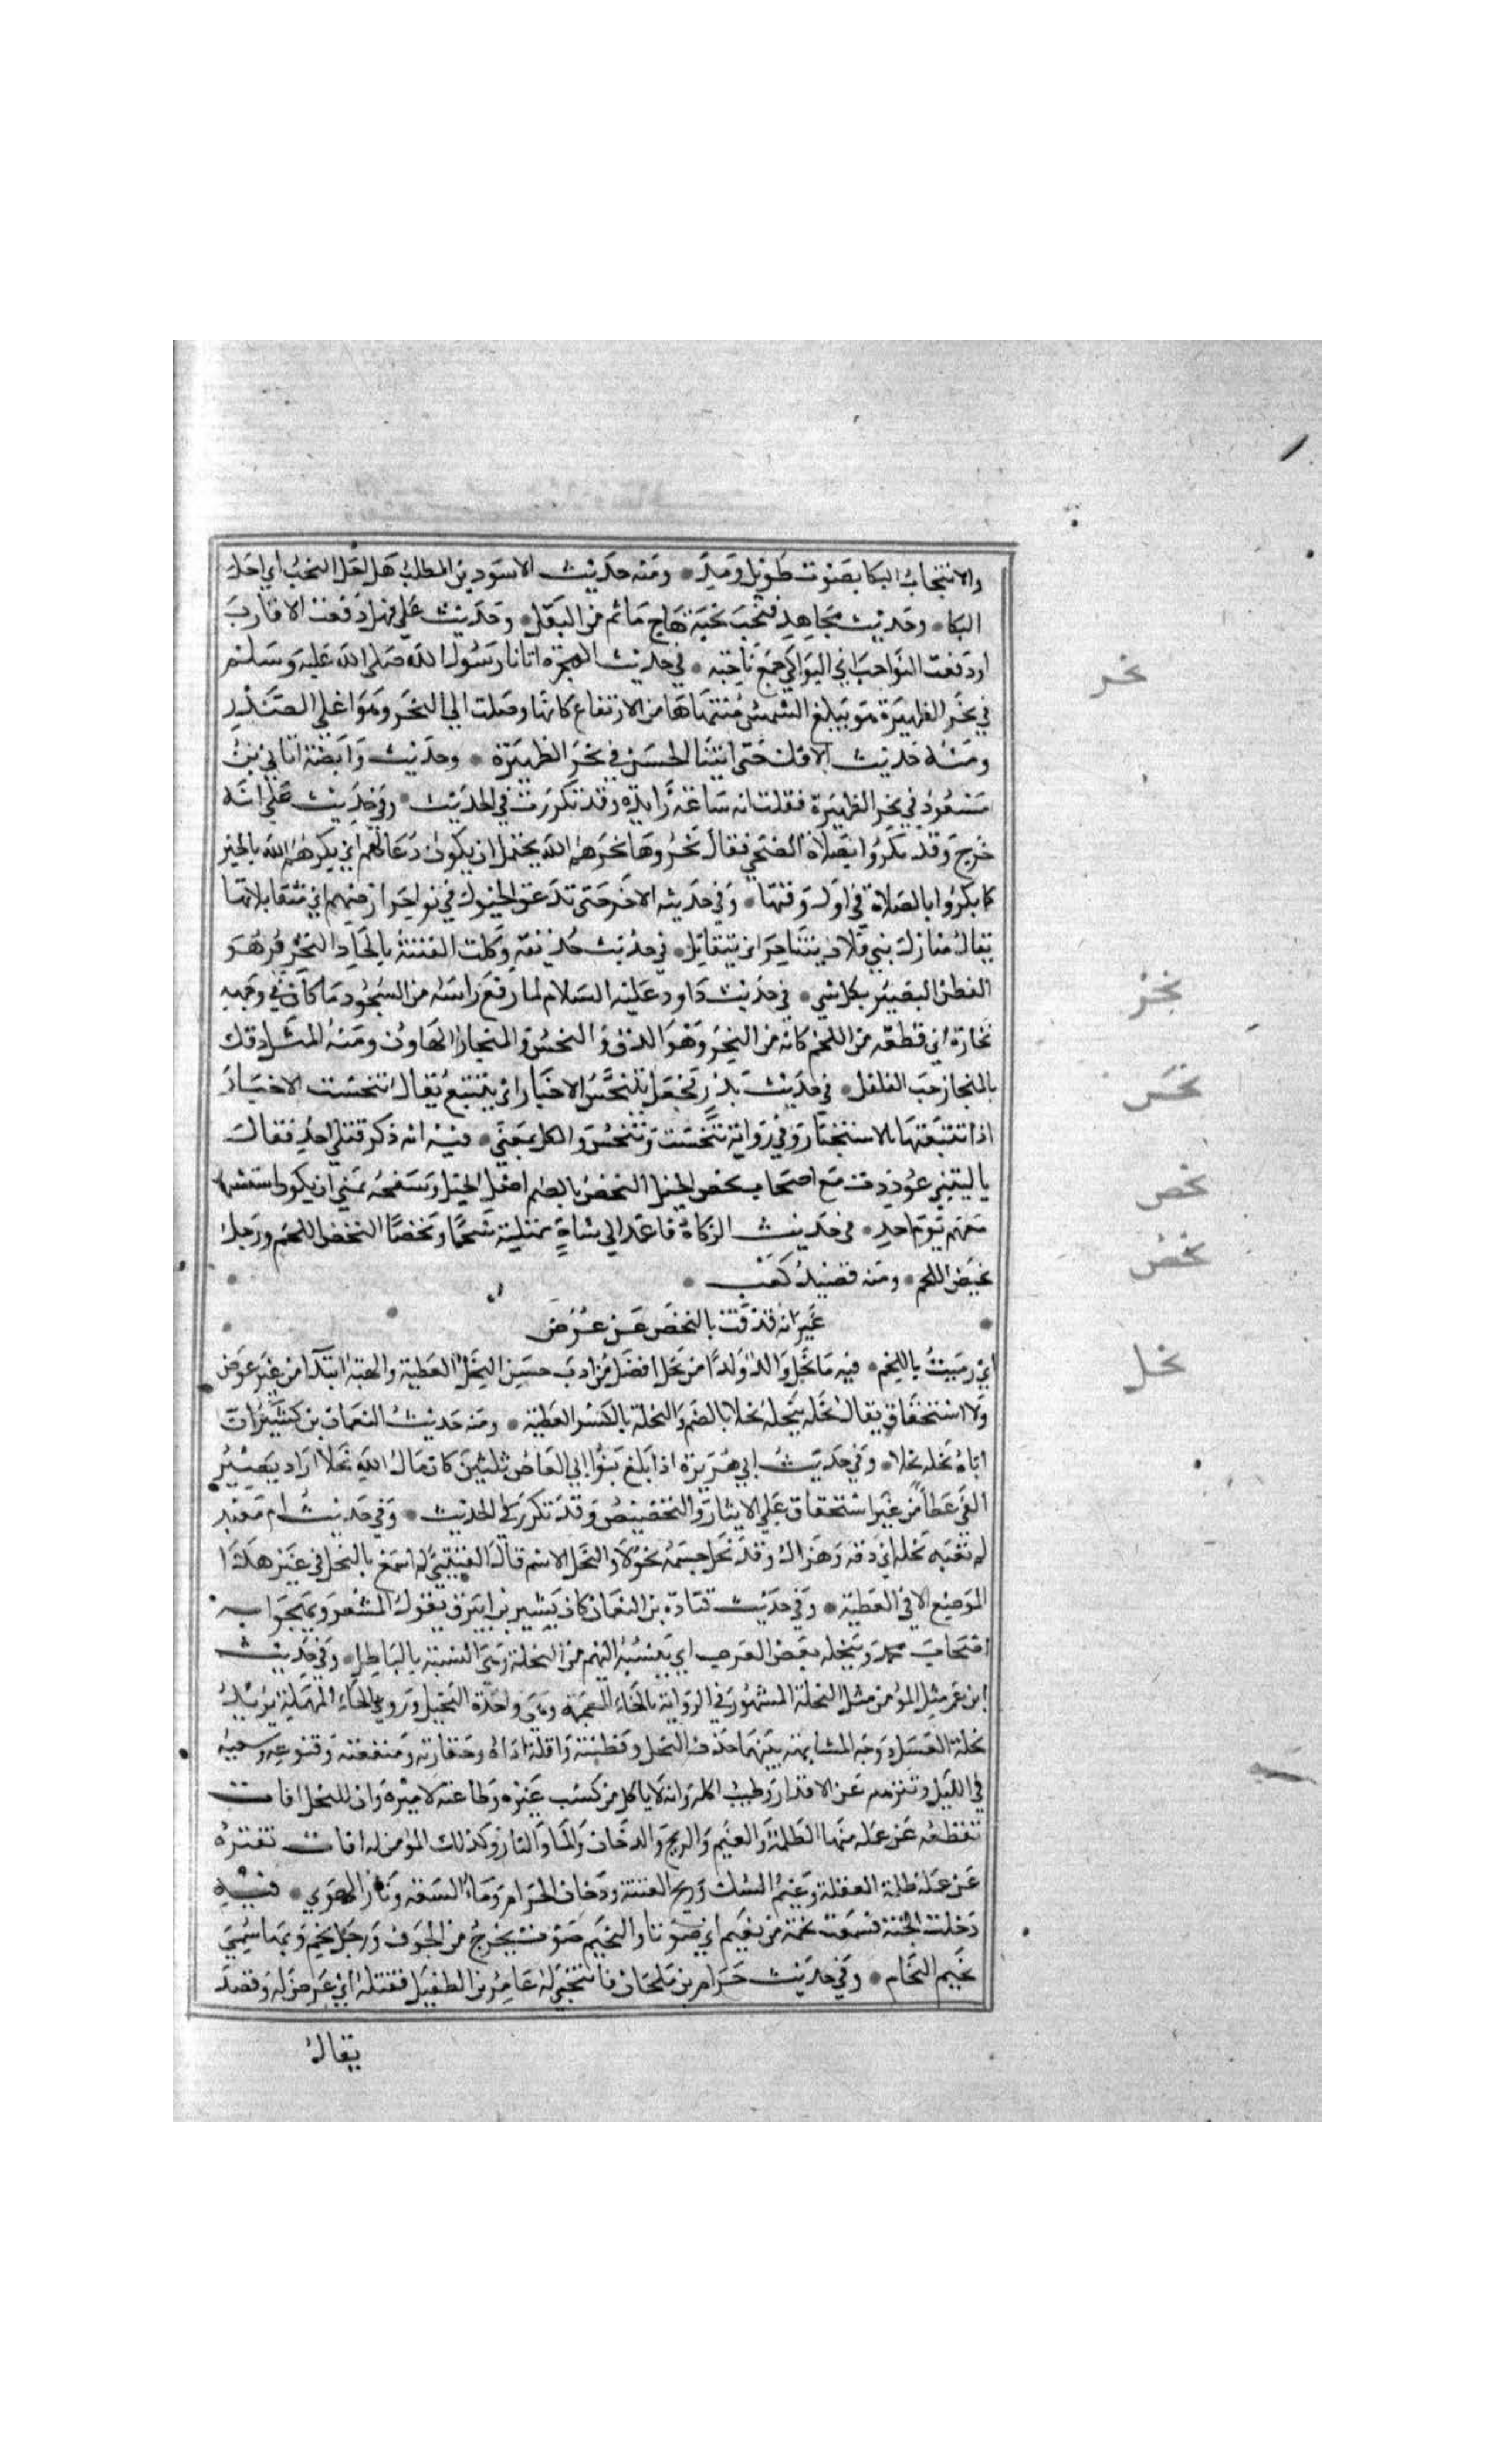 والانتحاب البكا بصوت طويل ومد ومنه حديث الاسود بن المطلب هل احل النحب اي احل
البكا وحديث مجاهد فنحب نحبة هاج ماثم من البقل وحديث علي فهل دفعت الاقارب
او نفعت النواحب اي البواكي جمع ناحبة في حديث الهجرة اتانا رسول الله صلى الله عليه وسلم
نحر
في نحر الظهيرة هو حين تبلغ الشمس منتهاها من الارتفاع كانها وصلت الي النحر وهو اعلي الصدر
ومنه حديث الافك حتى اتينا الجيش في نحر الظهيرة وحديث وابصة اتاني بن
مسعود في نحر الظهيرة فقلت انه ساعة زايدة وقد تكررت في الحديث وفي حديث علي انه
خرج وقد بكروا بصلاة الضحي فقال نحروها نحرهم الله يحتمل ان يكون دعا لهم اي بكرهم الله بالخير
كما بكروا بالصلاة في اول وقتها وفي حديثه الاخر حتى تدعق الخيول في نواحر ارضهم اي متقابلاتها
يقال منازل بني فلان تتناحر اي تتقابل في حديث حذيفة وكلت الفتنة بالحاد النحرير هو
الفطن البصير بكل شي في حديث داود عليه السلام لما رفع راسه من السجود ما كان في وجهه
نحز
نحازة اي قطعة من اللحم كانه من النحز وهو الدق والنخس والمنحاز الهاون ومنه المثل دقك
بالمنحاز حب الفلفل في حديث بدر فجعل يتنحس الاخبار اي يتتبع يقال تنحست الاخبار
نحس
اذا تتبعتها بالاستخبار وفي رواية تتحسب وتتحسس والكل بمعني فيه انه ذكر قتلي احد فقال
يا ليتني غودرت مع اصحاب نحص الجبل النحص بالضم اصل الجبل وسفحه تمني ان يكون استشهد
نحص
معهم يوم احد في حديث الزكاة فاعمد الي شاة ممتلية شحما ونحضا النحض اللحم ورجل
نحض
نحيض اللحم ومنه قصيد كعب
عيرانة قذفت بالنحض عن عرض
اي رميت باللحم فيه ما نحل والد ولدا من نحل افضل من ادب حسن النحل العطية والهبة ابتدا من غير عوض
نحل
ولا استحقاق يقال نحله ينحله نحلا بالضم والنحلة بالكسر العطية ومنه حديث النعمان بن بشير ان
اباه نحله نحلا وفي حديث ابي هريرة اذا بلغ بنوا ابي العاص ثلثين كان مال الله نحلا اراد يصير
الفي عطا من غير استحقاق علي الايثار والتخصيص وقد تكرر في الحديث وفي حديث ام معبد
لم تعبه نحلة اي دقة وهزال وقد نحل جسمه نحولا والنحل الاسم قال القتيبي لم اسمع بالنحل في غير هذا
الموضع الا في العطية وفي حديث قتادة بن النعمان كان بشير بن ابيرق يقول الشعر ويهجوا به
اصحاب محمد وينحله بعض العرب اي ينسبه اليهم من النحلة وهي النسبة بالباطل وفي حديث
ابن عمر مثل المؤمن مثل النحلة المشهور في الرواية بالخاء المعجمة وهي واحدة النخيل وروي بالحاء المهملة يريد
نحلة العسل ووجه المشابهة بينهما حذق النحل وفطنته وقلة اذاه وحقارته ومنفعته وقنوعه وسعيه
في الليل وتنزهه عن الاقذار وطيب اكله وانه لا ياكل من كسب غيره وطاعته لاميره وان للنحل افات
تقطعه عن عمله منها الظلمة والغيم والريح والدخان والماء والنار وكذلك المؤمن له افات تفتره
عن عمله ظلمة الغفلة وغيم الشك وريح الفتنة ودخان الحرام وماء السعة ونار الهوي فيه
دخلت الجنة فسمعت نحمة من نعيم اي صوتا والنحيم صوت يخرج من الجوف ورجل نحم وبها سمي
نعيم النحام وفي حديث حرام بن ملحان فانتحي له عامر بن الطفيل فقتله اي عرض له وقصد
يقال